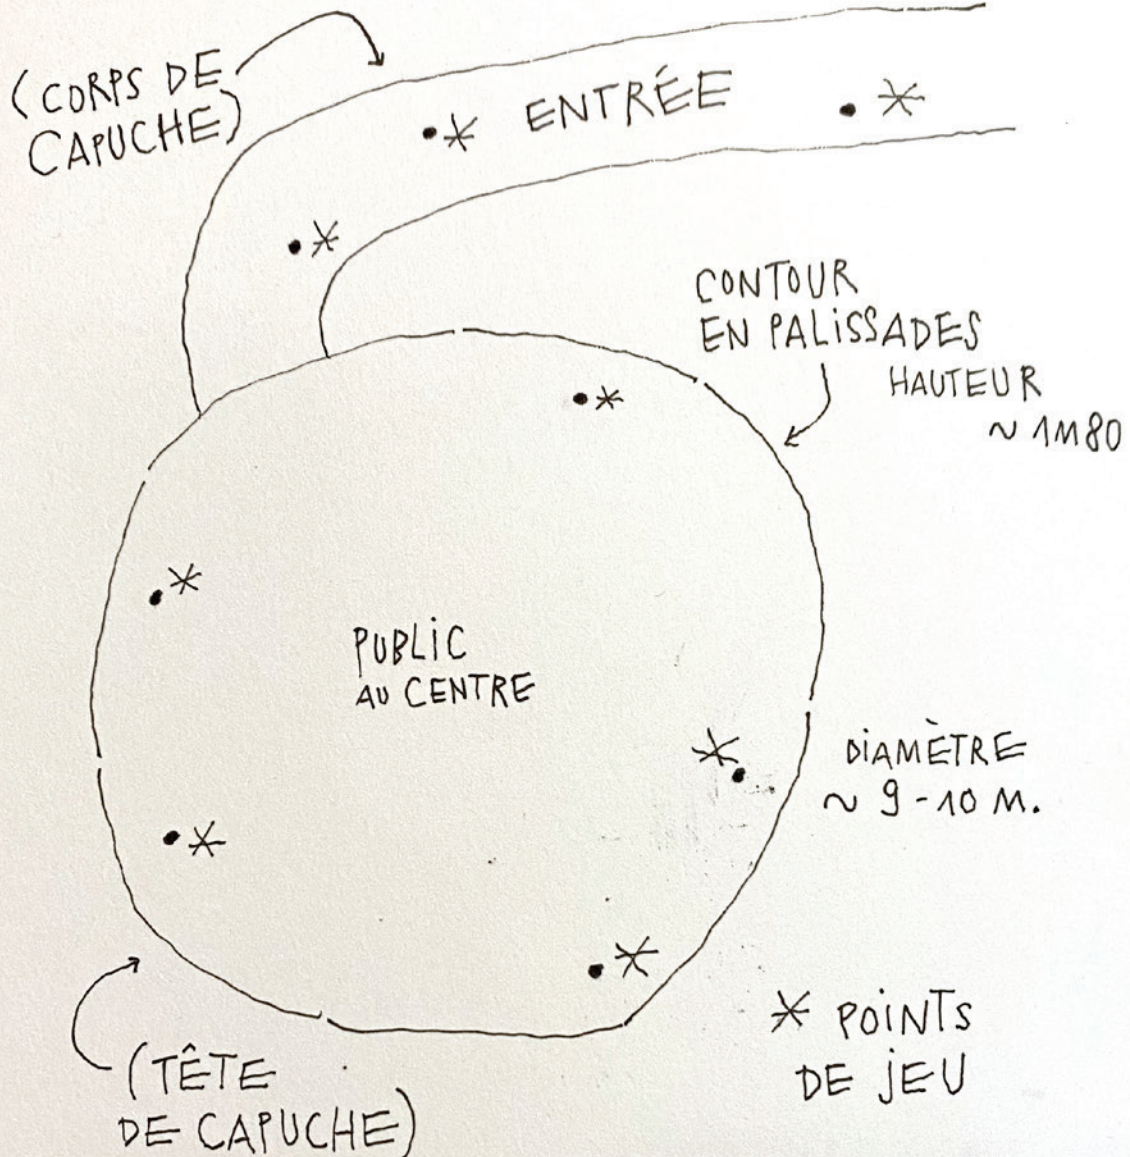 (CORPS DE
CAPUCHE)
* ENTRÉE *
*
CONTOUR
EN PALISSADES
HAUTEUR
~ 1M80
*
*
PUBLIC
AU CENTRE
*
DIAMÈTRE
~ 9-10 M.
*
*
* POINTS
DE JEU
(TÊTE
DE CAPUCHE)